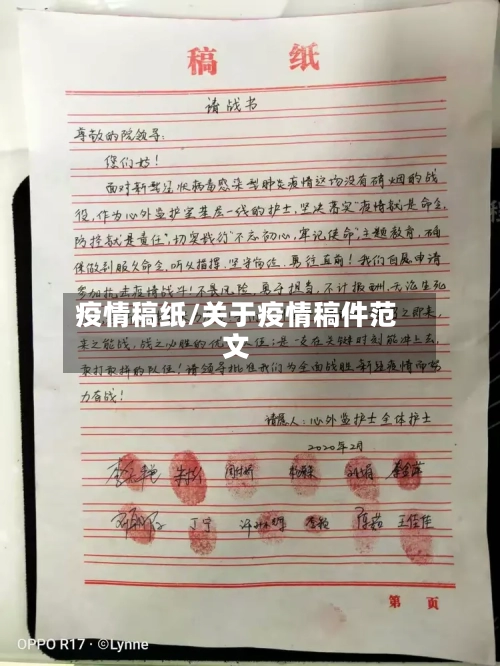 稿 纸
请战书
尊敬的院领导:
您们好!
面对新型冠状病毒感染型肺炎疫情这场没有硝烟的战
役,作为心外监护室基层一线的护士,坚决落实"疫情就是命令,
防控就是责任",切实践行"不忘初心,牢记使命"主题教育,确
保做到服从命令,听从指挥,坚守岗位,勇往直前!我们自愿申请
参加抗击疫情战斗!不畏风险,勇于担当,不计报酬,无论生死
疫情稿纸/关于疫情稿件范
文
之即来,
来之能战,战之必胜的优 是一支在关键时刻能冲上去,
豁打 的队伍!请领导批准我们为全面战胜新冠疫情而努
力奋战!
请愿人:心外监护士全体护士
2020年2月
丁宁
王佳佳
第 页
OPPO R17 · ©Lynne